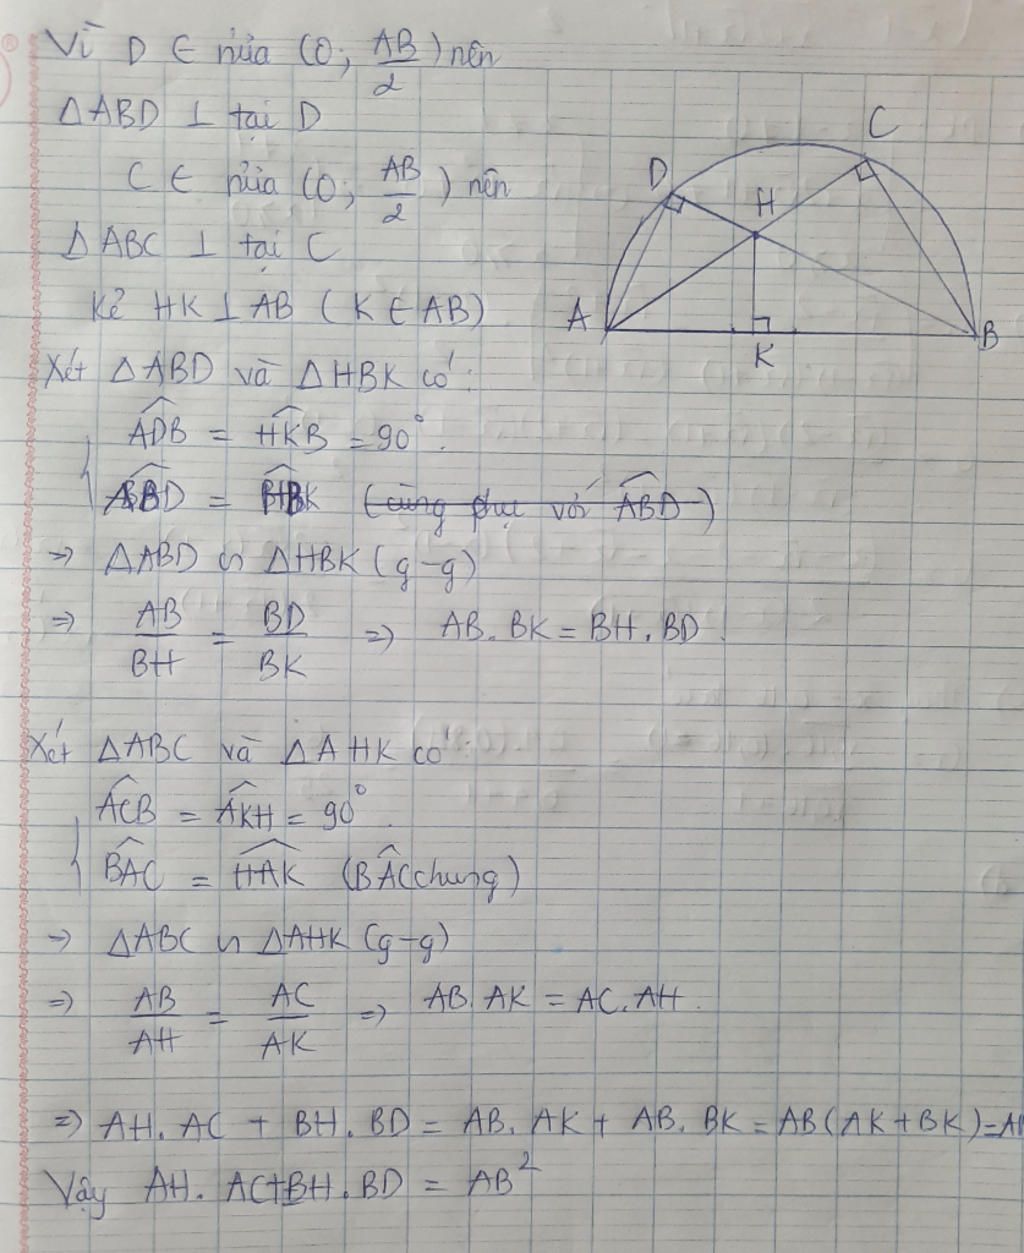 Vì D ∈ nửa (O; AB/2) nên
△ABD ⊥ tại D
C ∈ nửa (O; AB/2) nên
△ABC ⊥ tại C
Kẻ HK ⊥ AB (K ∈ AB)
D
C
H
A
K
B
Xét △ABD và △HBK có:
ADB = HKB = 90°.
ABD = HBK (cùng phụ với ABD)
=> △ABD ∽ △HBK (g-g)
=> AB/BH = BD/BK => AB. BK = BH. BD.
Xét △ABC và △AHK có:
ACB = AKH = 90°.
BAC = HAK (BAC chung)
=> △ABC ∽ △AHK (g-g)
=> AB/AH = AC/AK => AB. AK = AC. AH.
=> AH. AC + BH. BD = AB. AK + AB. BK = AB(AK+BK)=
Vậy AH. AC+BH. BD = AB²